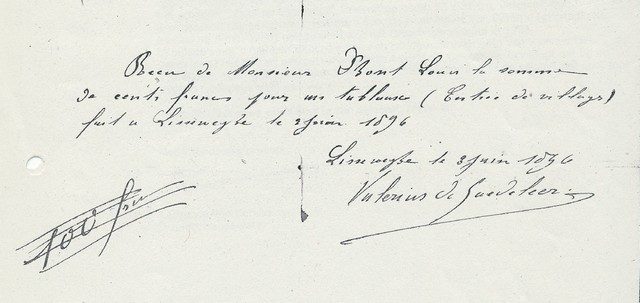 Recu de Monsieur Pront Louis la somme
de cents francs pour un tableau (Entrée de village)
fait a Lissweghe le 3 juin 1896
Lissweghe le 3 juin 1896
Valerius de Saedeleer
100 frs